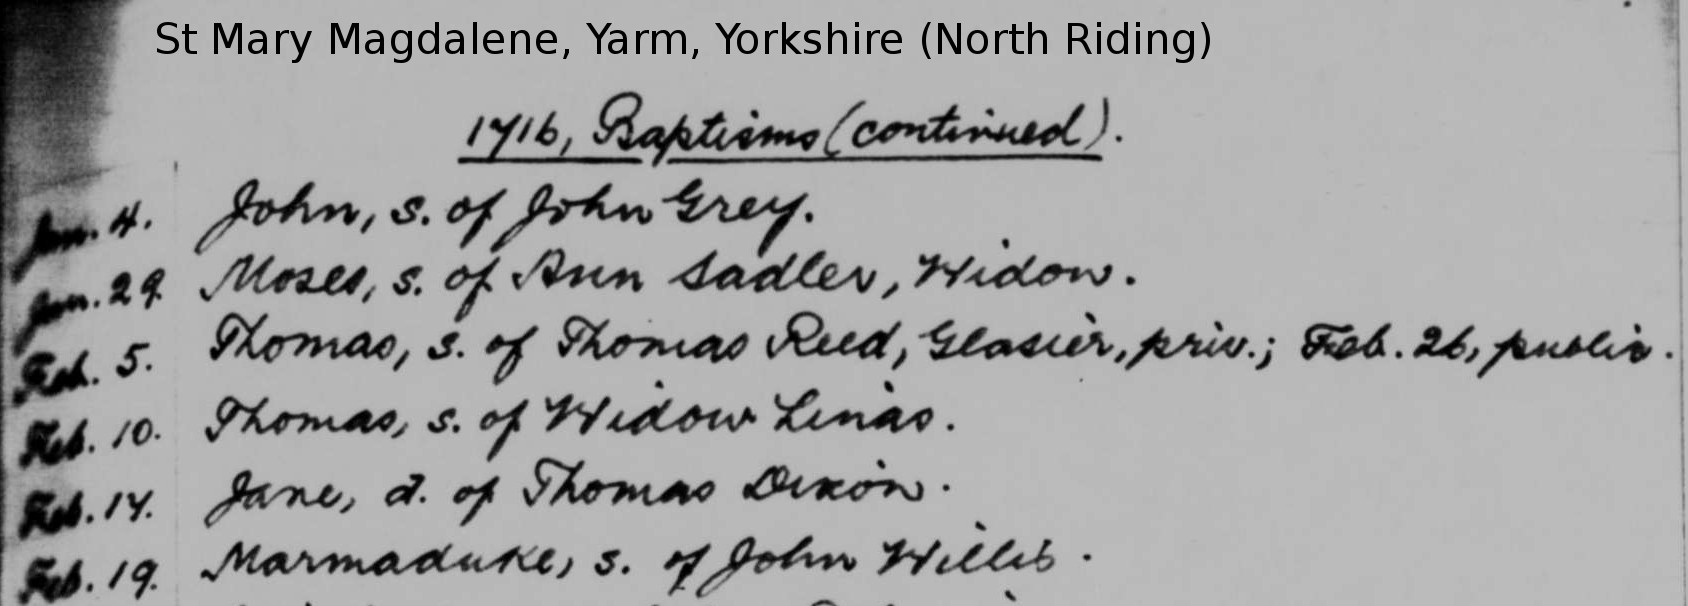 St Mary Magdalene, Yarm, Yorkshire (North Riding)
1716, Baptisms (continued).
Jan. 4. John, s. of John Grey.
Jan. 29. Moses, s. of Ann Sadler, Widow.
Feb. 5. Thomas, s. of Thomas Reed, Glasier, priv.; Feb. 26, public.
Feb. 10. Thomas, s. of Widow Linas.
Feb. 14. Jane, d. of Thomas Dixon.
Feb. 19. Marmaduke, s. of John Willis.